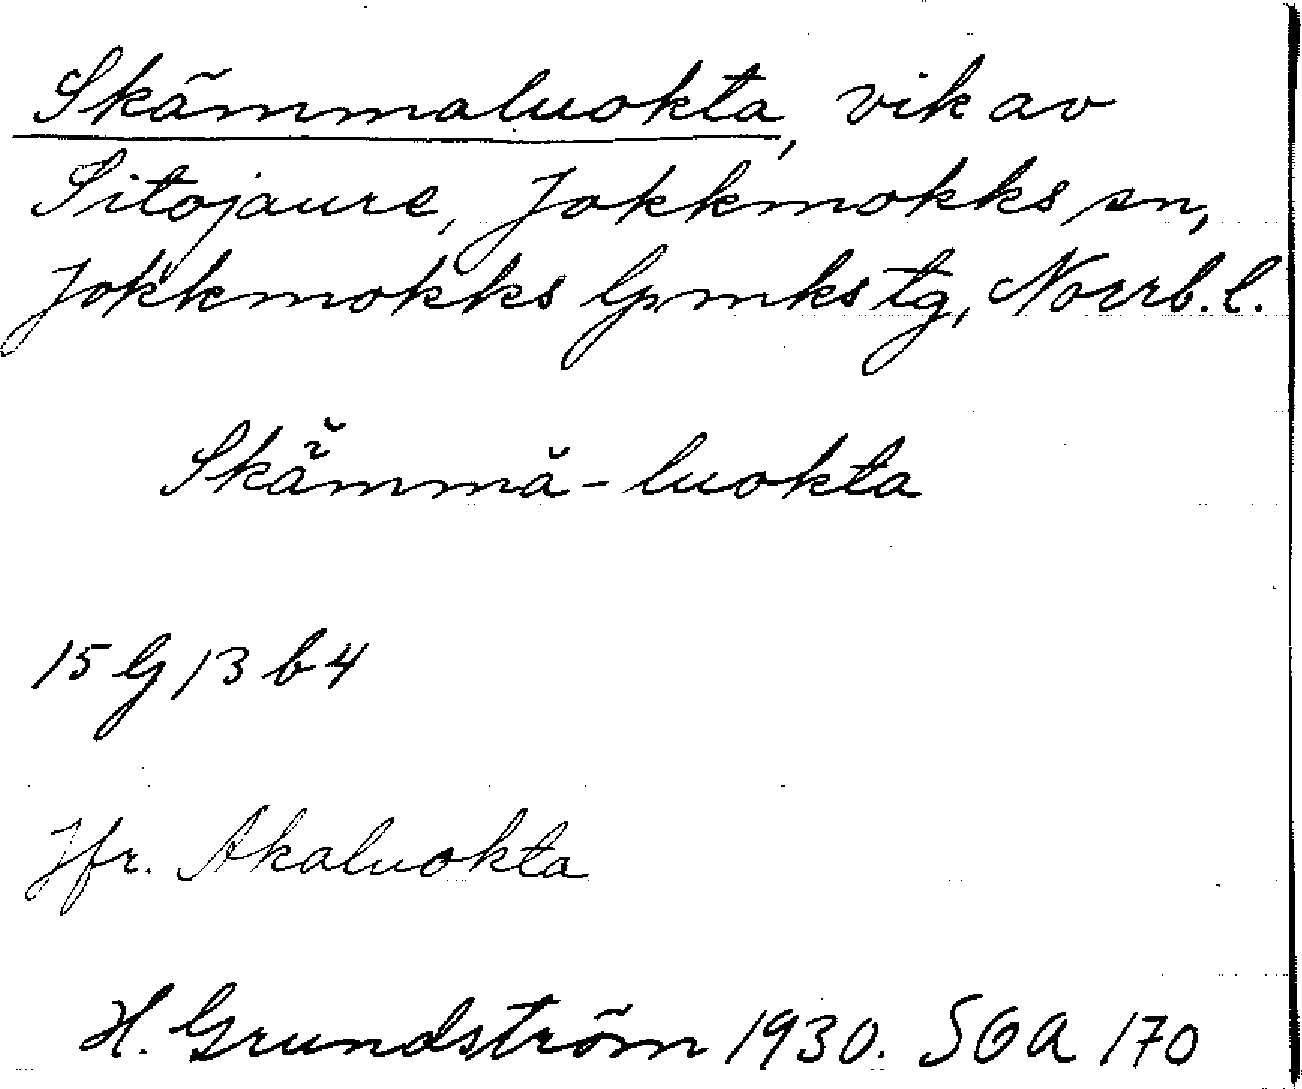 Skämmaluokta, vik av
Sitojaure, Jokkmokks sn,
Jokkmokks lpmks tg, Norrb. l.
Skä̆mmă-luokta
15 G 13 b 4
Jfr. Akaluokta
H. Grundström 1930. SOA 170